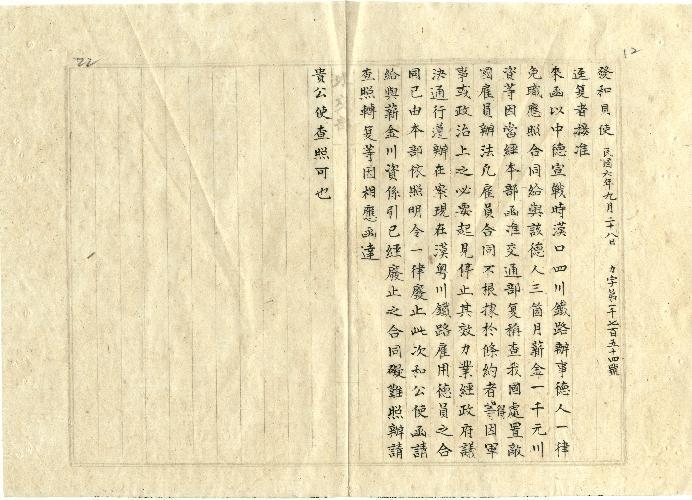 12
發和貝使 民國六年九月二十八日 力字第一千七百五十四號
逕复者據准
來函以中德宣戰時漢口四川鐵路辦事德人一律
免職應照合同給與該德人三箇月薪金一千元川
資等因當經本部函准交通部复稱查我國處置敵
國雇員辦法凡雇員合同不根據於條約者得因軍
事或政治上之必要起見停止其效力業經政府議
決通行遵辦在案現在漢粵川鐵路雇用德員之合
同已由本部依照明令一律廢止此次和公使函請
給與薪金川資係引已經廢止之合同礙難照辦請
查照轉复等因相應函達
貴公使查照可也
22